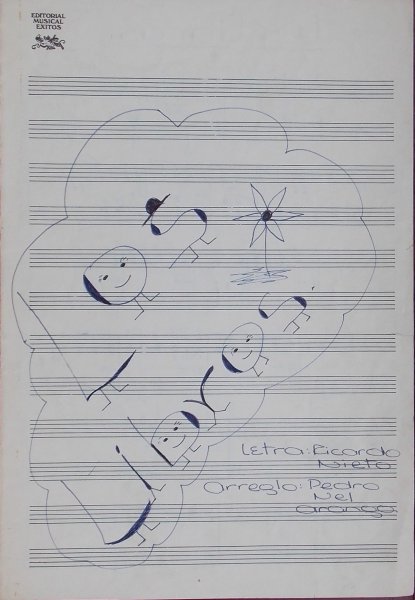 EDITORIAL
MUSICAL
EXITOS
Los
Libros
Letra: Ricardo
Nieto
Arreglo: Pedro
Nel
arango